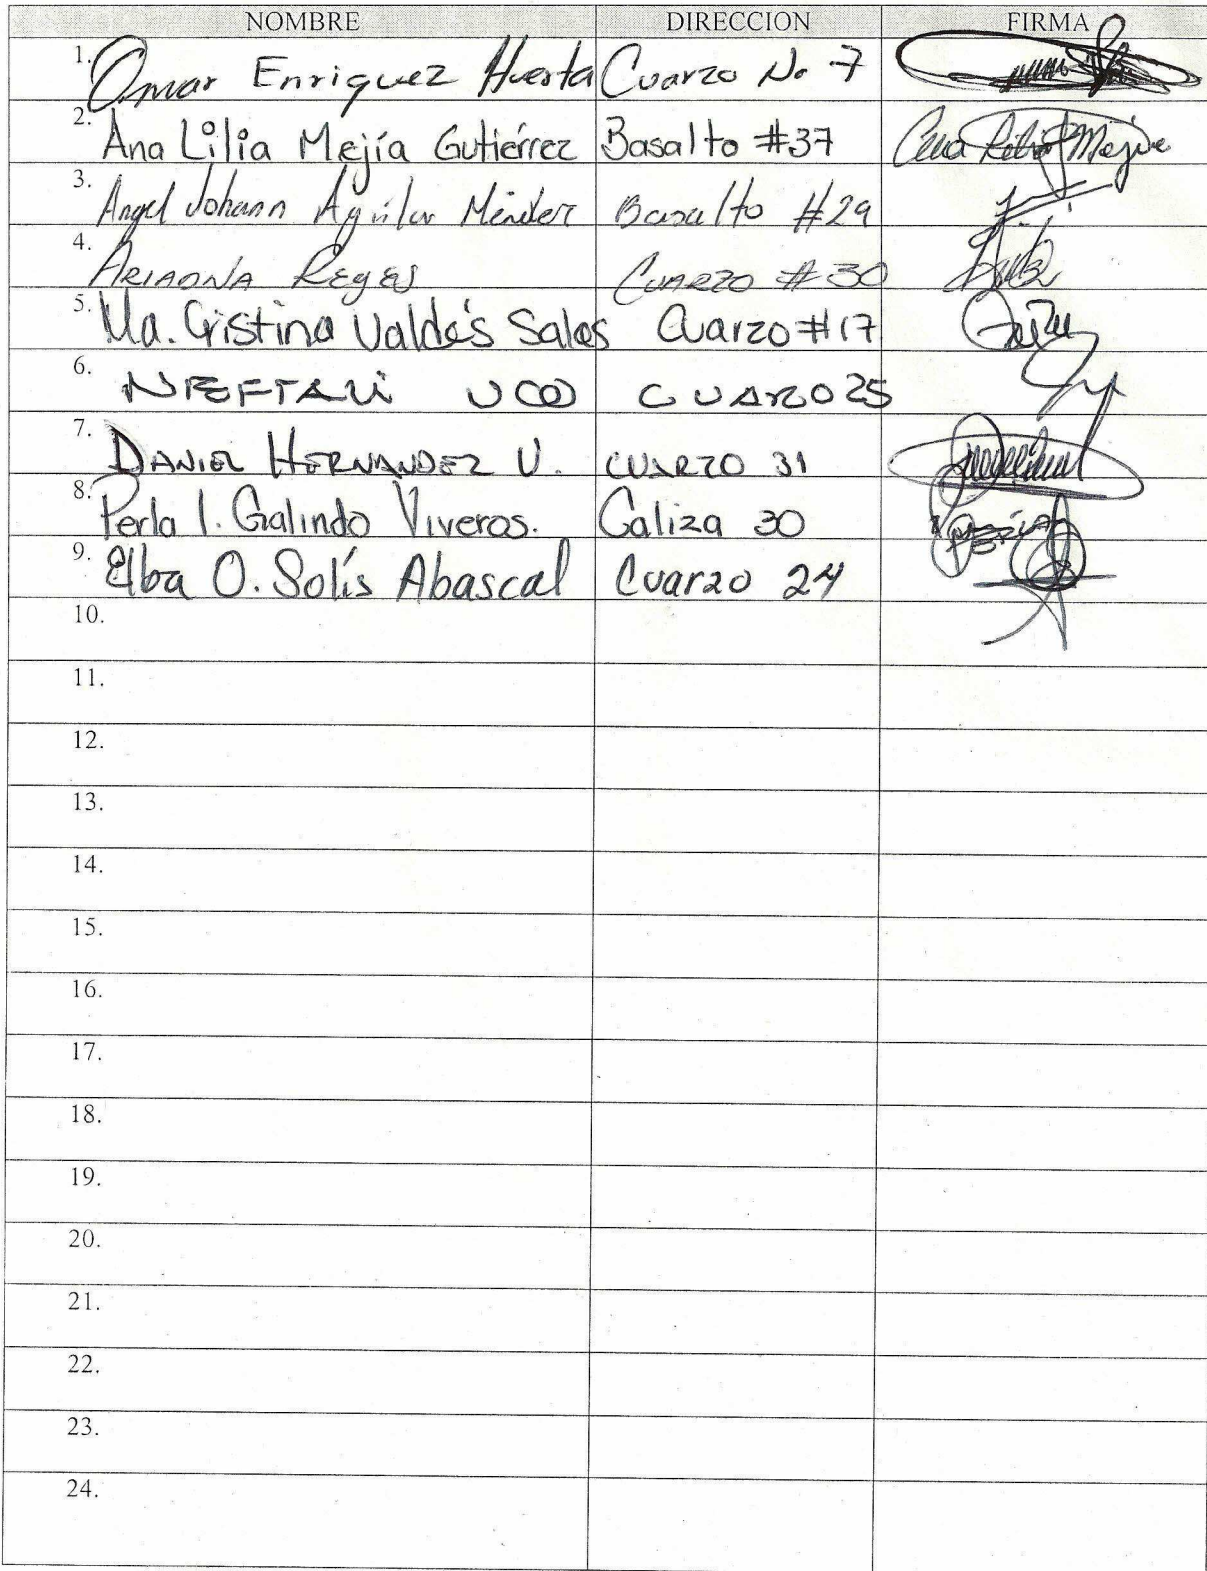 NOMBRE DIRECCION FIRMA
1. Omar Enriquez Huerta Cuarzo No 7
2. Ana Lilia Mejía Gutiérrez Basalto #37
3. Angel Johann Aguilar Méndez Basalto #29
4. ARIADNA REYES CUARZO #30
5. Ma. Cristina Valdés Salas Cuarzo #17
6. NEFTALI CUARZO 25
7. DANIEL HERNANDEZ V. CUARZO 31
8. Perla I. Galindo Viveros. Caliza 30
9. Elba O. Solís Abascal Cuarzo 24
10.
11.
12.
13.
14.
15.
16.
17.
18.
19.
20.
21.
22.
23.
24.